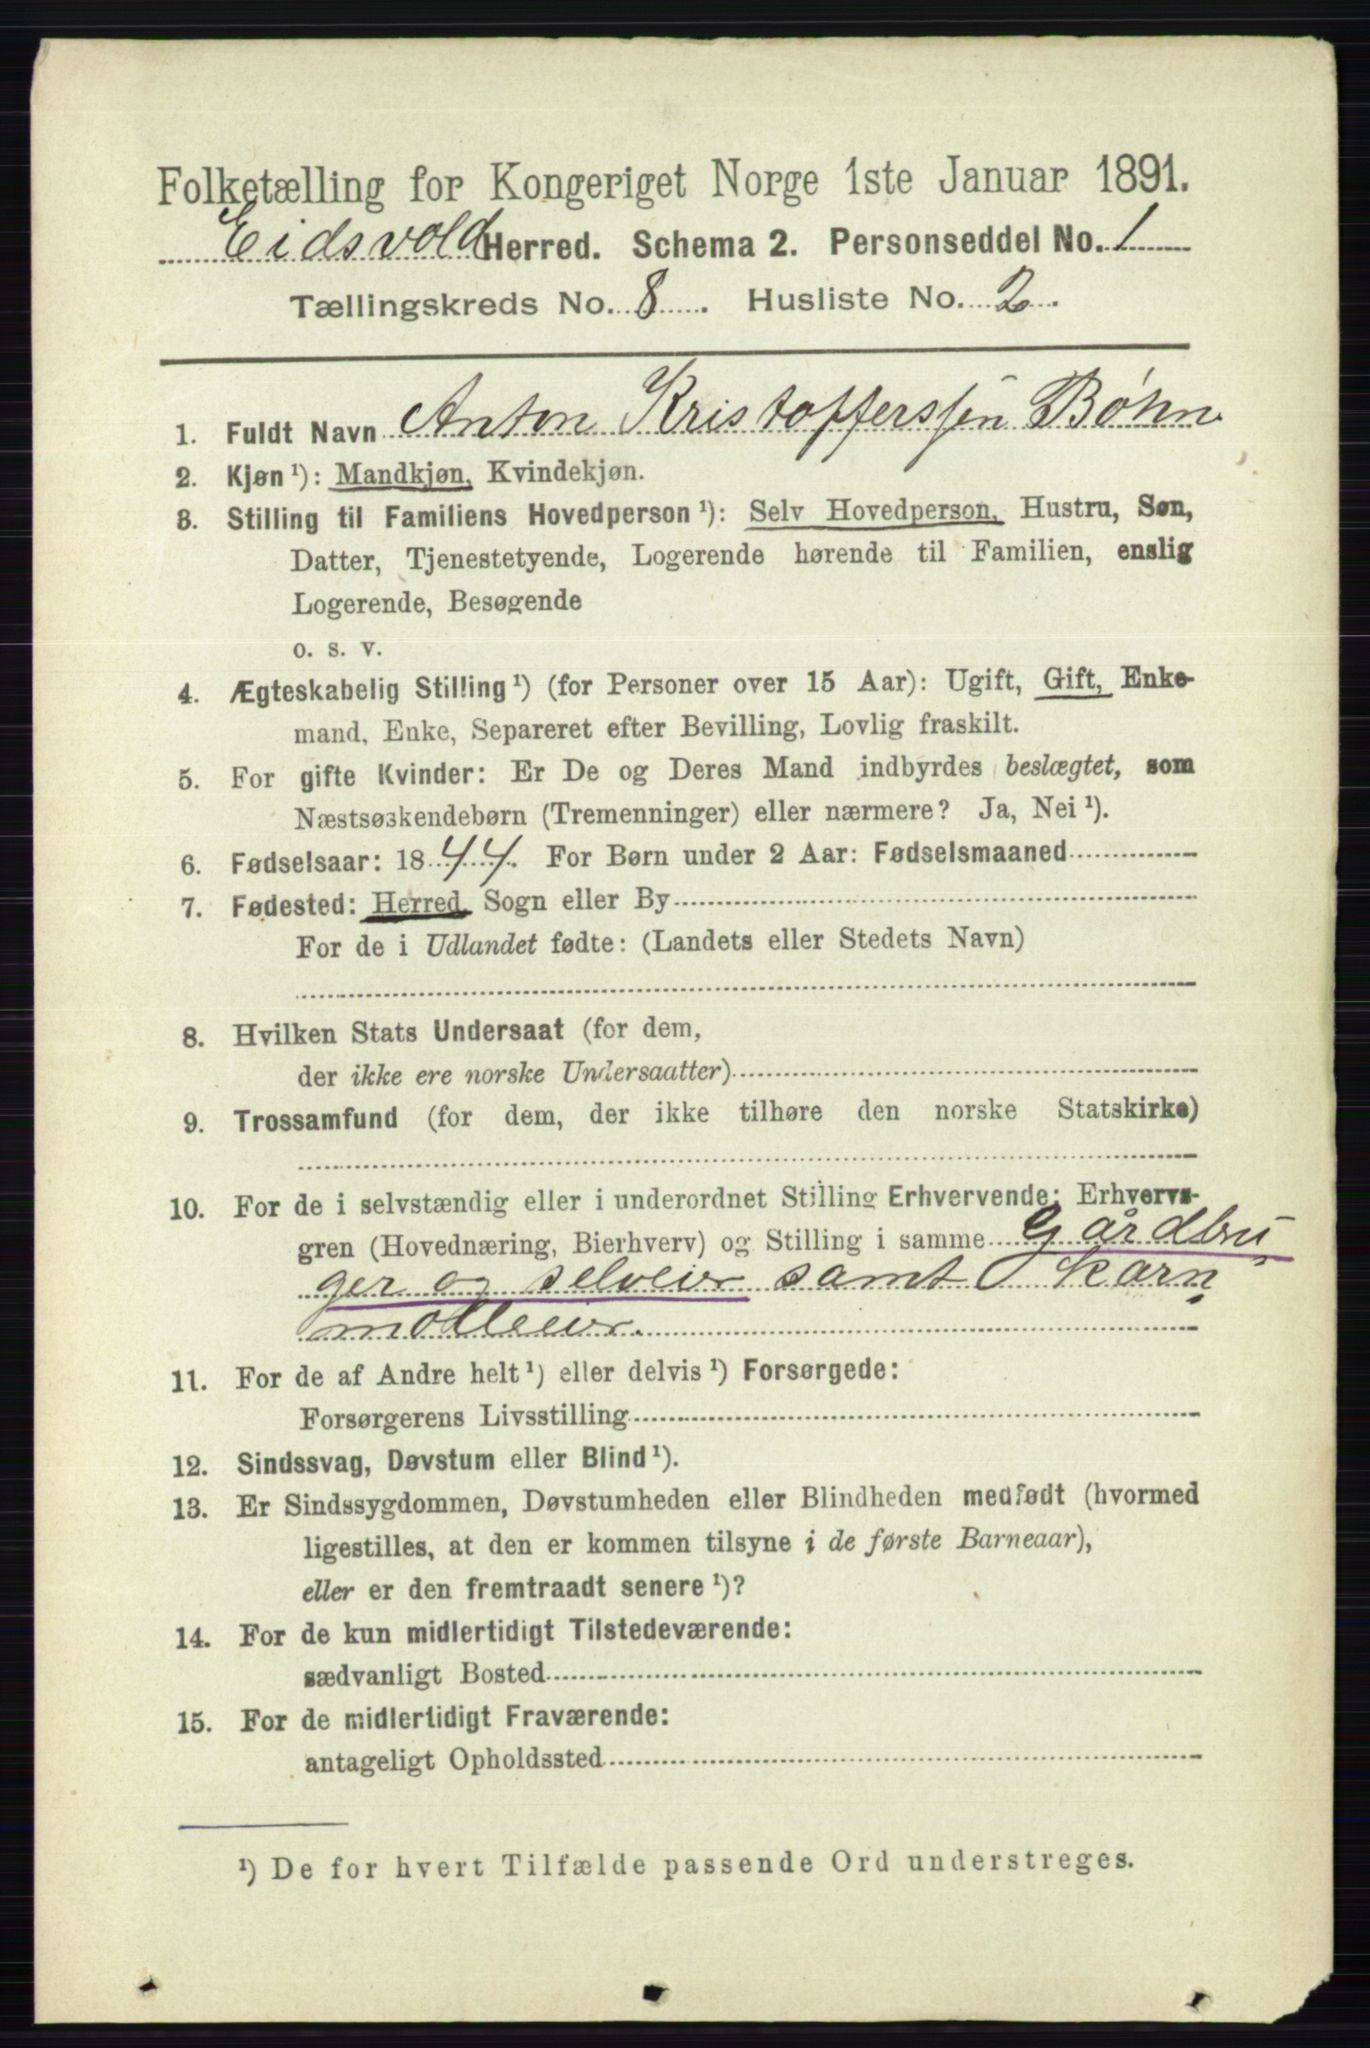 Folketælling for Kongeriget Norge 1ste Januar 1891.
Eidsvold Herred. Schema 2. Personseddel No. 1
Tællingskreds No. 8. Husliste No. 2.
1. Fuldt Navn Anton Kristofferssen Bøhn
2. Kjøn ¹): Mandkjøn, Kvindekjøn.
3. Stilling til Familiens Hovedperson ¹): Selv Hovedperson, Hustru, Søn,
Datter, Tjenestetyende, Logerende hørende til Familien, enslig
Logerende, Besøgende
o. s. v.
4. Ægteskabelig Stilling ¹) (for Personer over 15 Aar): Ugift, Gift, Enke-
mand, Enke, Separeret efter Bevilling, Lovlig fraskilt.
5. For gifte Kvinder: Er De og Deres Mand indbyrdes beslægtet, som
Næstsøskendebørn (Tremenninger) eller nærmere? Ja, Nei ¹).
6. Fødselsaar: 1844. For Børn under 2 Aar: Fødselsmaaned
7. Fødested: Herred, Sogn eller By
For de i Udlandet fødte: (Landets eller Stedets Navn)
8. Hvilken Stats Undersaat (for dem,
der ikke ere norske Undersaatter)
9. Trossamfund (for dem, der ikke tilhøre den norske Statskirke)
10. For de i selvstændig eller i underordnet Stilling Erhvervende: Erhvervs-
gren (Hovednæring, Bierhverv) og Stilling i samme Gårdbru
ger og selveier samt Korn
mølleeier.
11. For de af Andre helt ¹) eller delvis ¹) Forsørgede:
Forsørgerens Livsstilling
12. Sindssvag, Døvstum eller Blind ¹).
13. Er Sindssygdommen, Døvstumheden eller Blindheden medfødt (hvormed
ligestilles, at den er kommen tilsyne i de første Barneaar),
eller er den fremtraadt senere ¹)?
14. For de kun midlertidigt Tilstedeværende:
sædvanligt Bosted
15. For de midlertidigt Fraværende:
antageligt Opholdssted
¹) De for hvert Tilfælde passende Ord understreges.